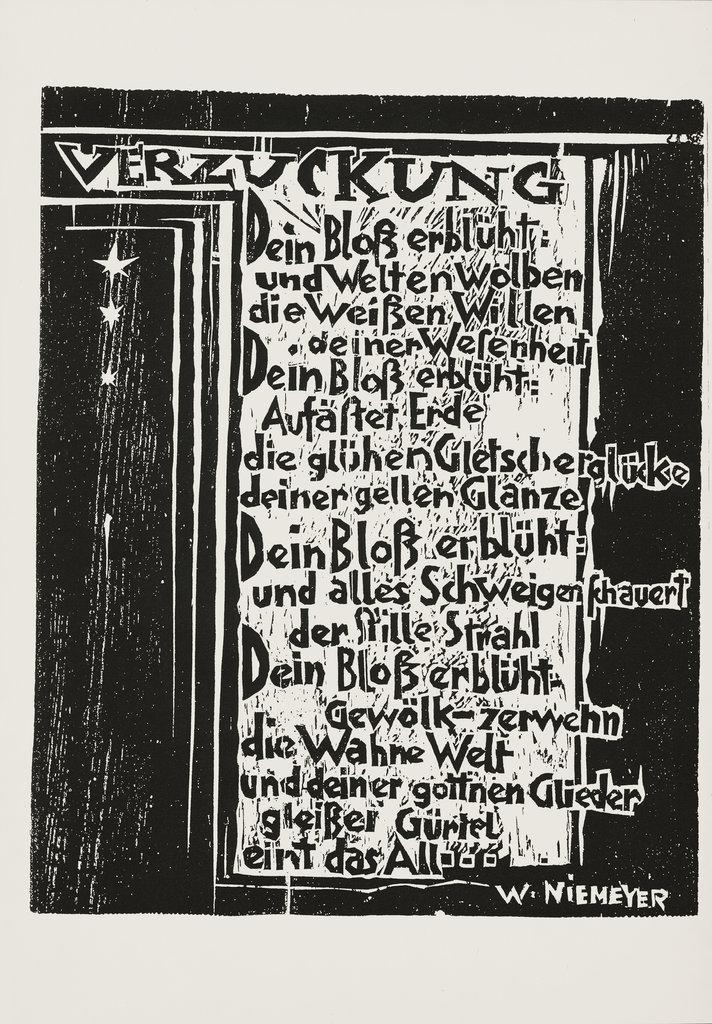 VERZÜCKUNG
Dein Bloß erblüht:
und Welten Wölben
die Weißen Willen
deiner Wesenheit
Dein Bloß erblüht:
Aufästet Ende
die glühen Gletscherglücke
deiner gellen Glänze
Dein Bloß erblüht:
und alles Schweigen schauert
der stille Strahl
Dein Bloß erblüht
Gewölk-zerwehn
die Wahne Welt
und deiner gottnen Glieder
gleißer Gürtel
eint das All...
W. NIEMEYER